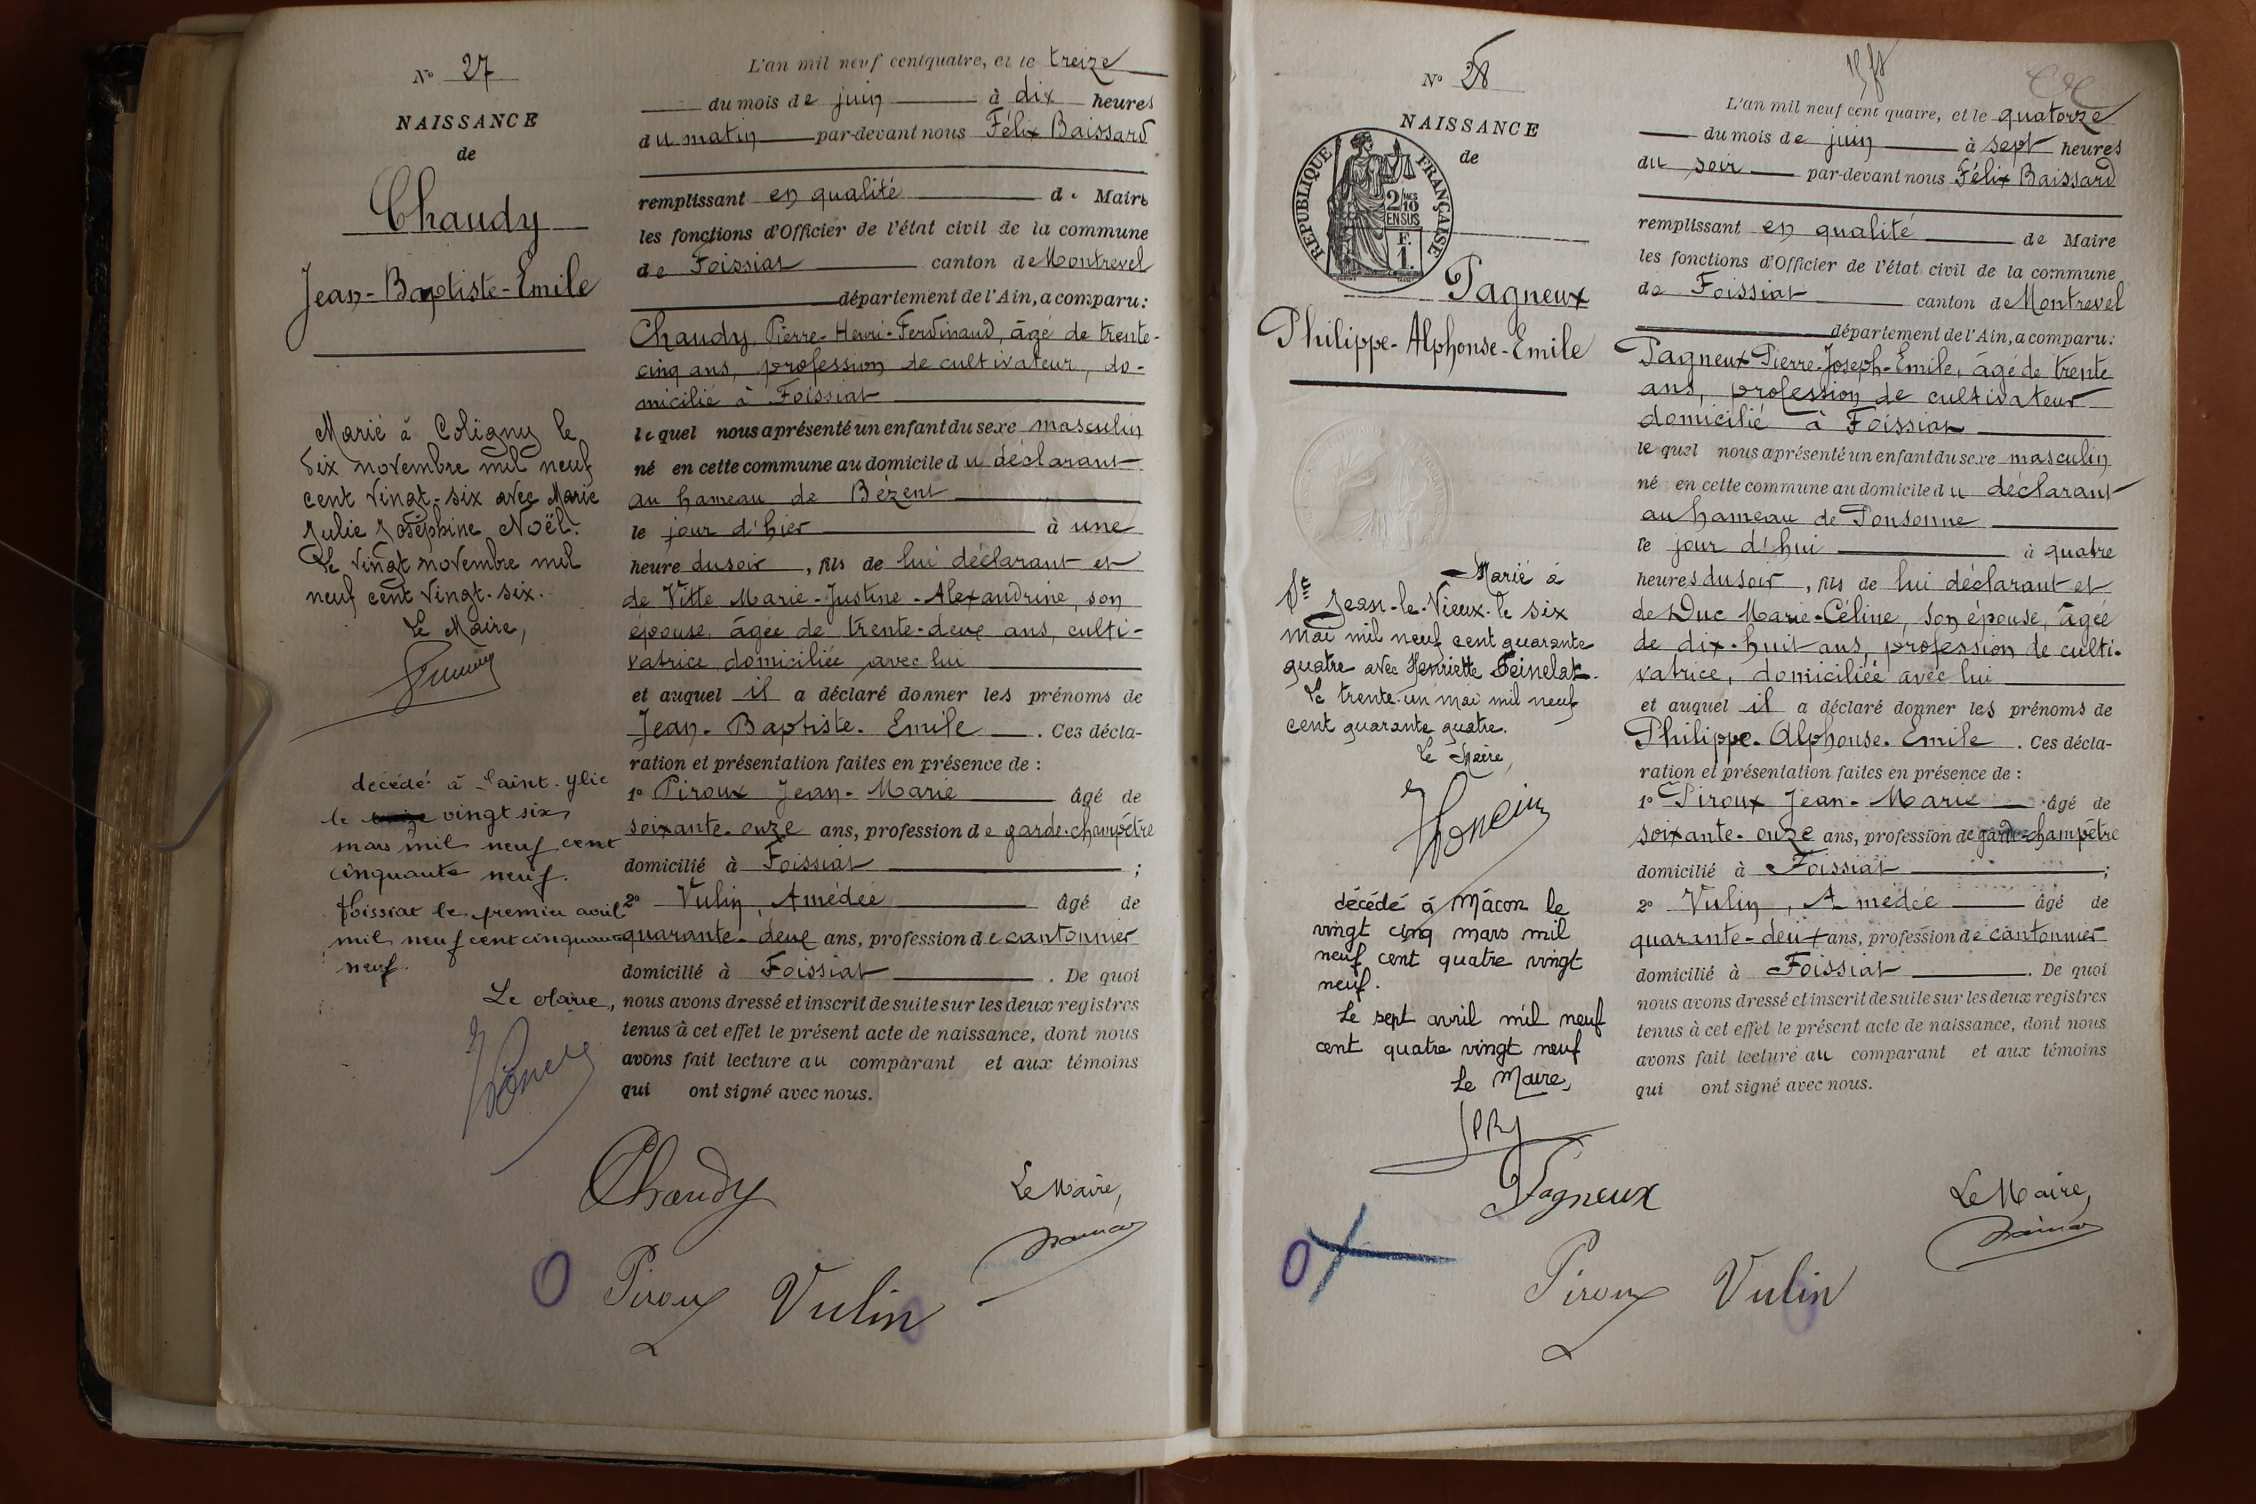 N° 27
NAISSANCE
de
Chaudy
Jean-Baptiste-Emile
Marié à Coligny le
six novembre mil neuf
cent vingt-six avec Marie
Julie Joséphine Noël.
Le vingt novembre mil
neuf cent vingt-six.
Le Maire,
décédé à Saint-Ylie
le vingt six
mars mil neuf cent
cinquante neuf.
Foissiat le premier avril
mil neuf cent cinquante
neuf.
Le Maire,
L'an mil neuf cent quatre, et le treize
du mois de juin à dix heures
du matin par-devant nous Félix Baissard
remplissant en qualité de Maire
les fonctions d'Officier de l'état civil de la commune
de Foissiat canton de Montrevel
département de l'Ain, a comparu:
Chaudy, Pierre-Henri-Ferdinand, âgé de trente-
cinq ans, profession de cultivateur, do-
micilié à Foissiat
lequel nous a présenté un enfant du sexe masculin
né en cette commune au domicile du déclarant
au hameau de Bézent
le jour d'hier à une
heure du soir, fils de lui déclarant et
de Vitte Marie-Justine-Alexandrine, son
épouse, âgée de trente-deux ans, culti-
vatrice, domiciliée avec lui
et auquel il a déclaré donner les prénoms de
Jean-Baptiste-Emile. Ces décla-
ration et présentation faites en présence de:
1° Piroux Jean-Marie âgé de
soixante-onze ans, profession de garde-champêtre
domicilié à Foissiat;
2° Vulin, Amédée âgé de
quarante-deux ans, profession de cantonnier
domicilié à Foissiat. De quoi
nous avons dressé et inscrit de suite sur les deux registres
tenus à cet effet le présent acte de naissance, dont nous
avons fait lecture au comparant et aux témoins
qui ont signé avec nous.
Chaudy
Le Maire,
Piroux Vulin
N° 28
NAISSANCE
de
RÉPUBLIQUE FRANÇAISE
2/10
EN SUS
F.
1.
Pagneux
Philippe-Alphonse-Emile
Marié à
St Jean-le-Vieux le six
mai mil neuf cent quarante
quatre avec Henriette Feinelat.
Le trente-un mai mil neuf
cent quarante quatre.
Le Maire,
décédé à Mâcon le
vingt cinq mars mil
neuf cent quatre vingt
neuf.
Le sept avril mil neuf
cent quatre vingt neuf
Le Maire,
L'an mil neuf cent quatre, et le quatorze
du mois de juin à sept heures
du soir par-devant nous Félix Baissard
remplissant en qualité de Maire
les fonctions d'Officier de l'état civil de la commune
de Foissiat canton de Montrevel
département de l'Ain, a comparu:
Pagneux Pierre-Joseph-Emile, âgé de trente
ans, profession de cultivateur
domicilié à Foissiat
lequel nous a présenté un enfant du sexe masculin
né en cette commune au domicile du déclarant
au hameau de Ponsonne
le jour d'hui à quatre
heures du soir, fils de lui déclarant et
de Duc Marie-Céline, son épouse, âgée
de dix-huit ans, profession de culti-
vatrice, domiciliée avec lui
et auquel il a déclaré donner les prénoms de
Philippe-Alphonse-Emile. Ces décla-
ration et présentation faites en présence de:
1° Piroux Jean-Marie âgé de
soixante-onze ans, profession de garde-champêtre
domicilié à Foissiat;
2° Vulin, Amédée âgé de
quarante-deux ans, profession de cantonnier
domicilié à Foissiat. De quoi
nous avons dressé et inscrit de suite sur les deux registres
tenus à cet effet le présent acte de naissance, dont nous
avons fait lecture au comparant et aux témoins
qui ont signé avec nous.
Pagneux
Le Maire,
Piroux Vulin